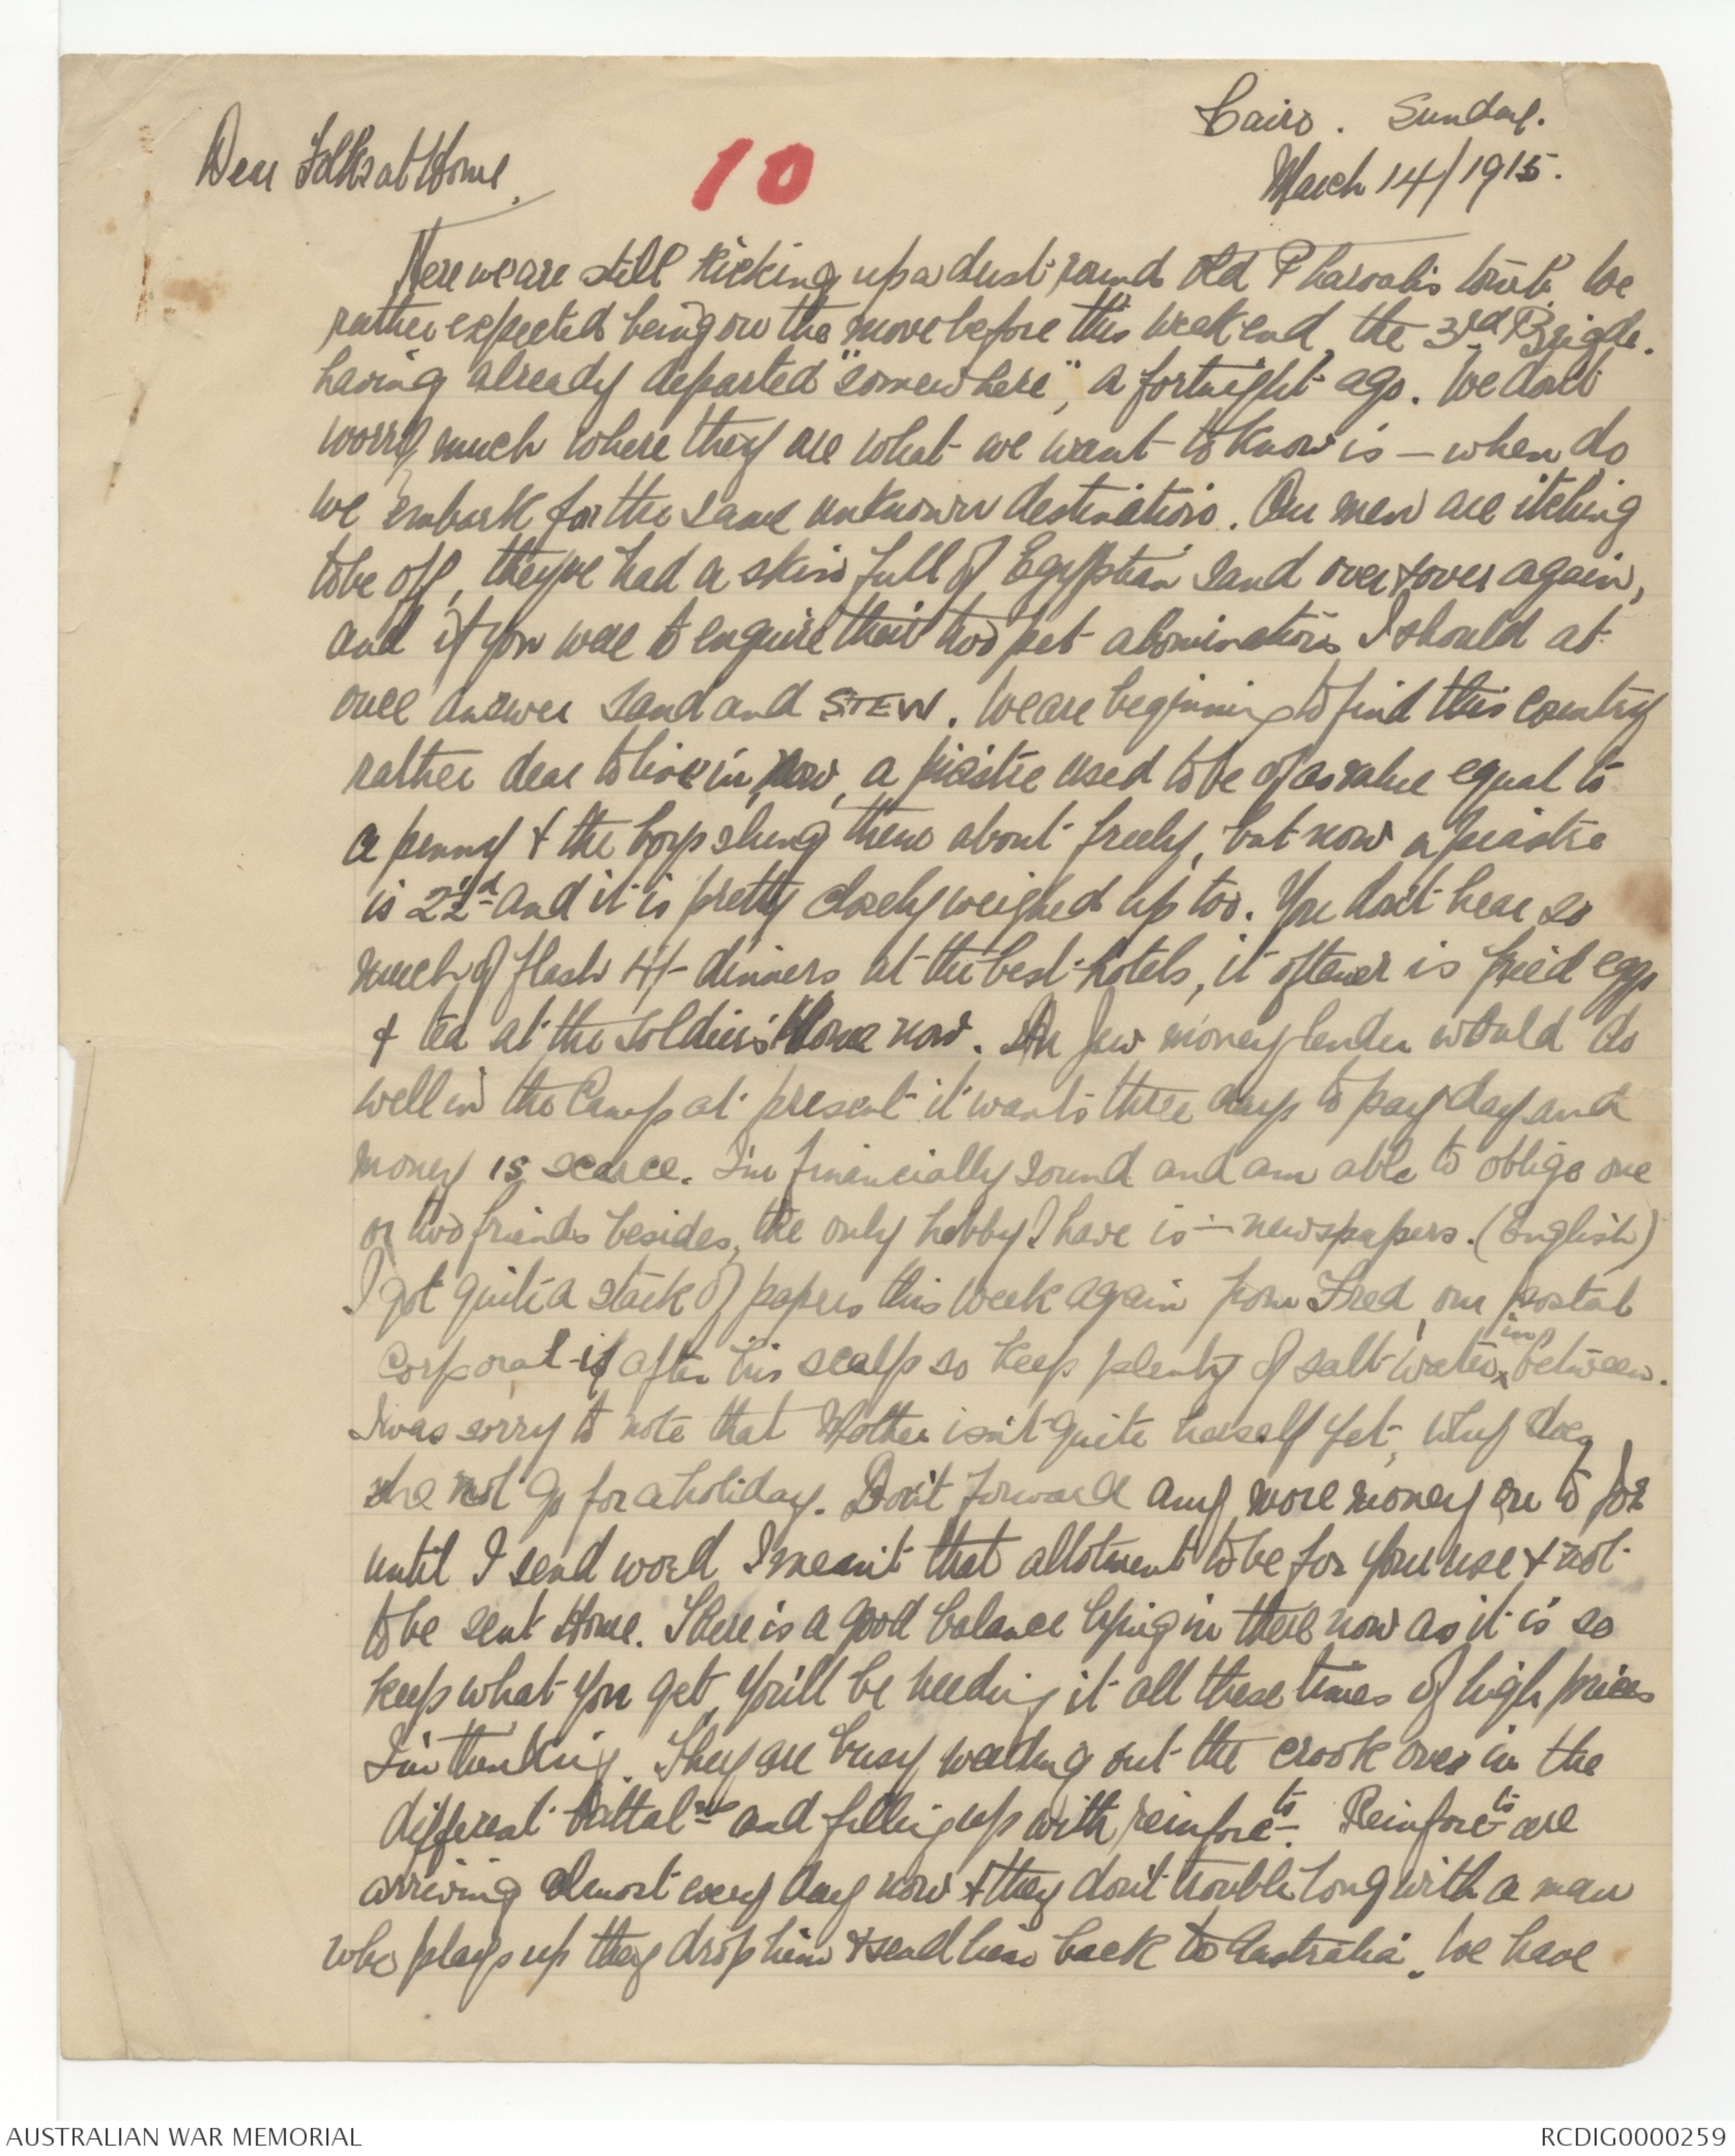 Cairo. Sunday.
March 14/1915.
Dear Folks at Home,
10
Here we are still kicking up a dust round old Pharoah's tomb. We
rather expected being on the move before this week end, the 3rd Brigde.
having already departed "somewhere", a fortnight ago. We dont
worry much where they are what we want to know is — when do
we embark for the same unknown destination. Our men are itching
to be off, they've had a skin full of Egyptian sand over & over again,
and if you were to enquire their two pet abominations I should at
once answer sand and STEW. We are beginning to find this country
rather dear to live in, now, a piastre used to be of as value equal to
a penny & the boys slung them about freely, but now a piastre
is 2½d and it is pretty closely weighed up too. You don't hear so
much of flash 4/- dinners at the best hotels, it oftener is fried eggs
& tea at the Soldiers' Home now. A Jew money lender would do
well in the Camp at present it wants three days to pay day and
money is scarce. I'm financially sound and am able to oblige one
or two friends besides, the only hobby I have is — newspapers. (English)
I got quite a stack of papers this week again from Fred, our postal
Corporal is after his scalp so keep plenty of salt water in between.
I was sorry to note that Mother isn't quite herself yet, why does
she not go for a holiday. Don't forward any more money on to
until I send word I meant that allotment to be for your use & not
to be sent Home. There is a good balance lying in there now as it is so
keep what you get, you'll be needing it all these times of high prices
I'm thinking. They are busy weeding out the crook over in the
different battalns and filling up with reinforcts. Reinforcts are
arriving almost every day now & they don't trouble long with a man
who plays up they drop him & send him back to Australia. We have
AUSTRALIAN WAR MEMORIAL
RCDIG0000259